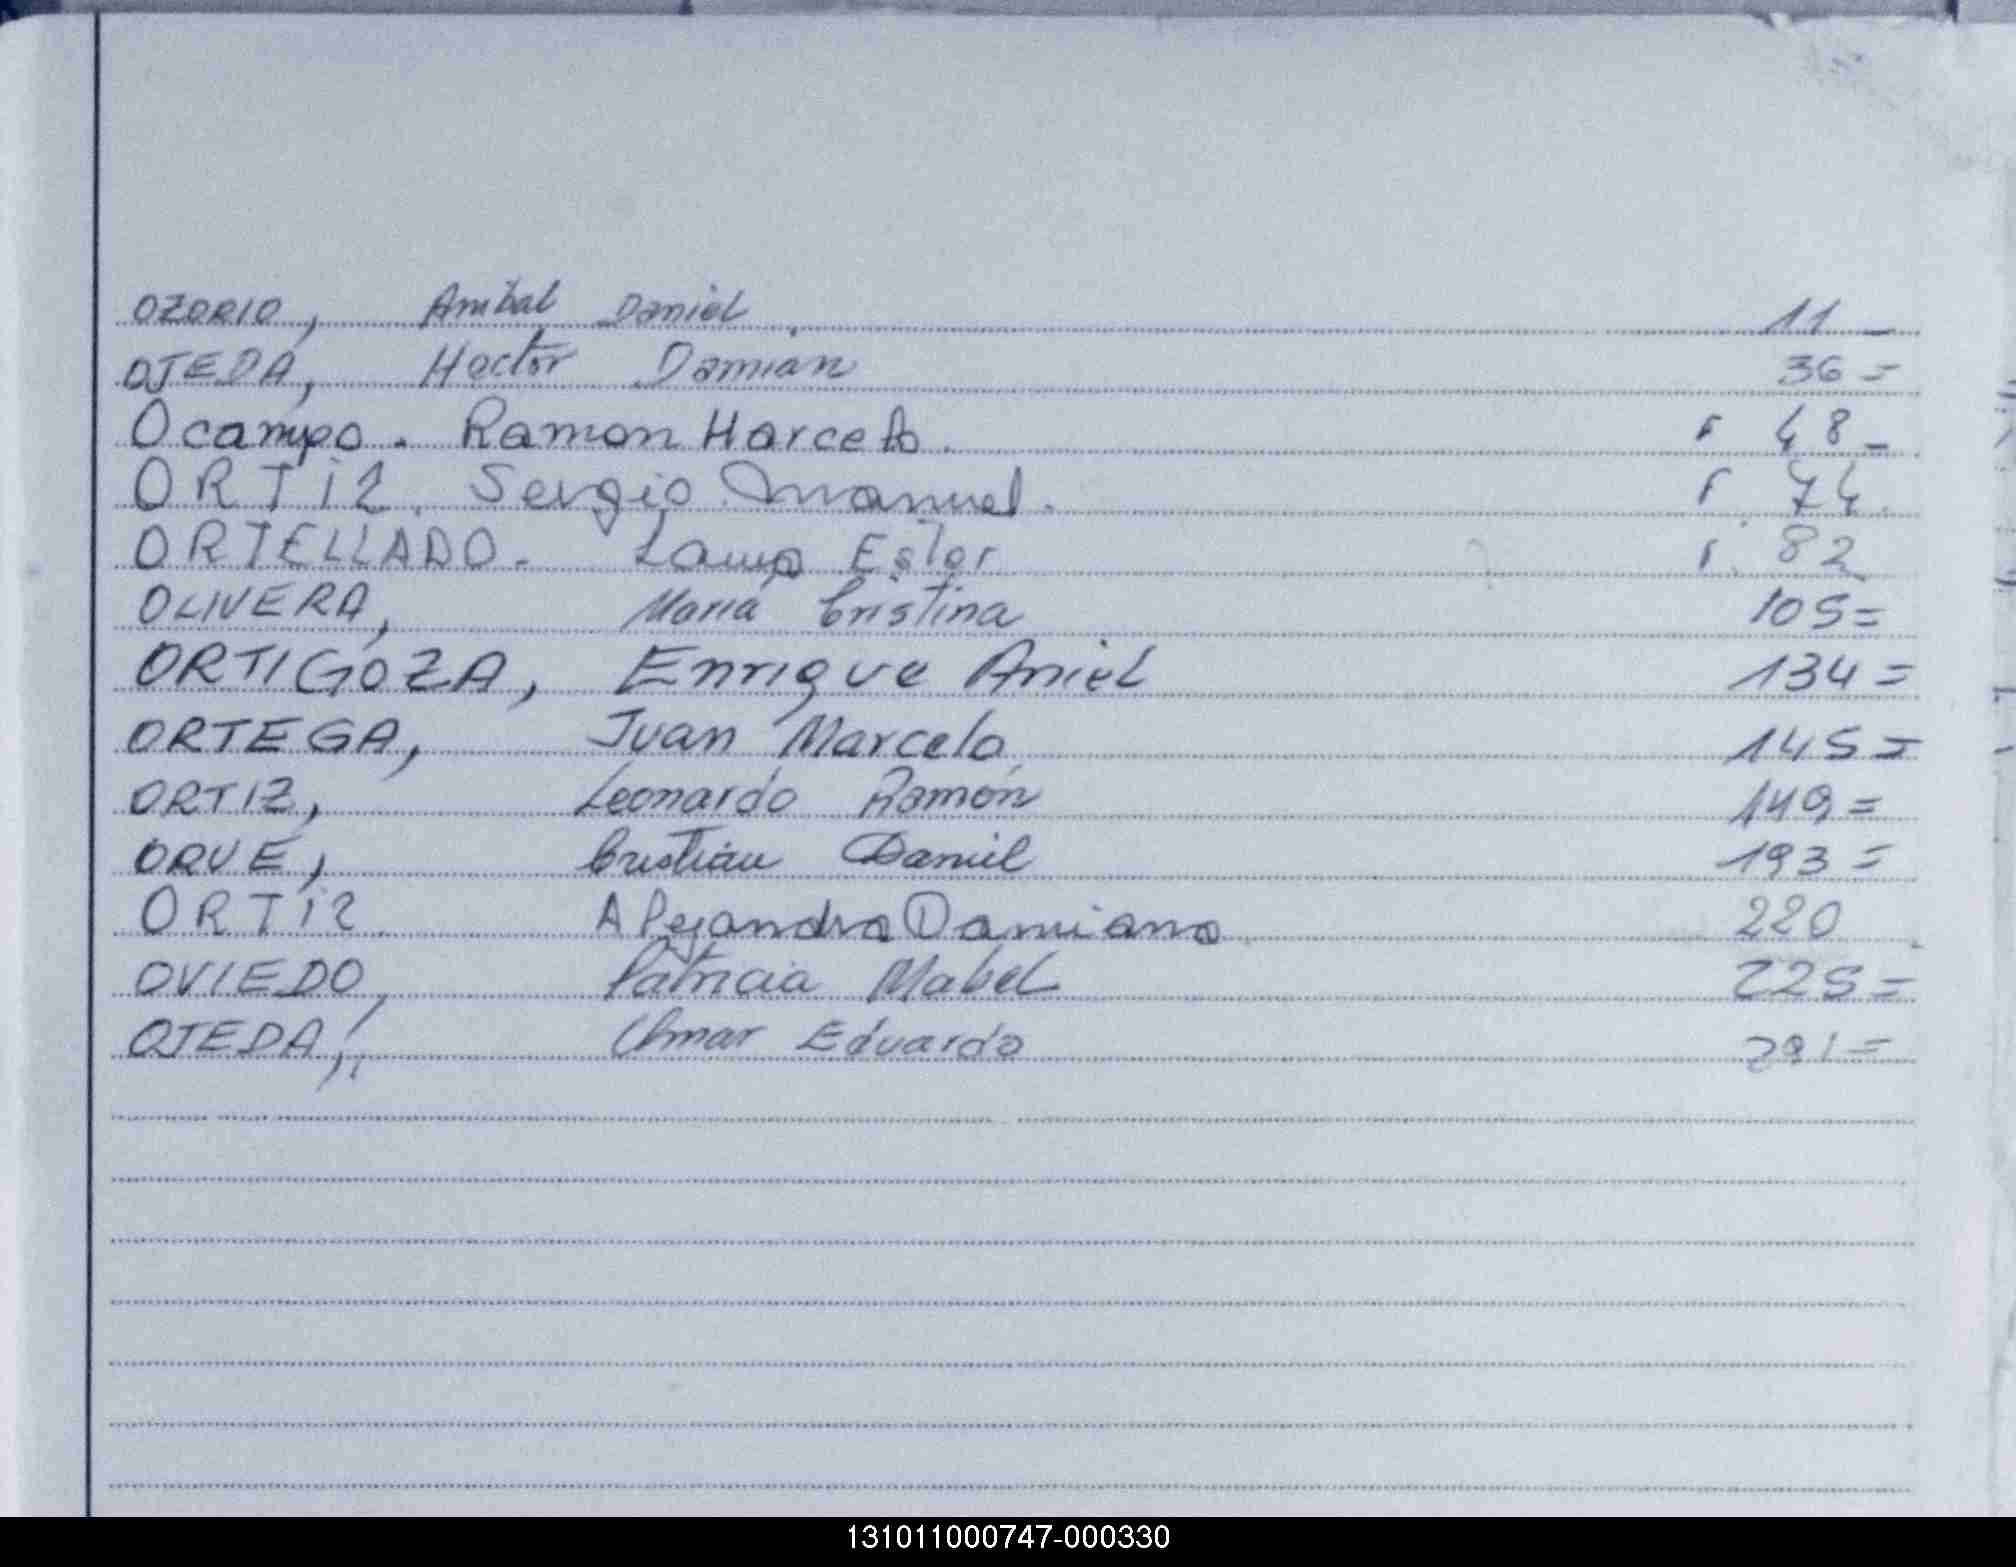 OZORIO, Anibal Daniel. 11 _
OJEDA, Hector Damián 36 =
Ocampo. Ramon Marcelo. F 48 _
ORTiZ. Sergio Manuel. F. 74.
ORTELLADO. Laura Ester F. 82
OLIVERA, María Cristina 105 =
ORTIGOZA, Enrique Ariel 134 =
ORTEGA, Juan Marcelo 145 =
ORTIZ, Leonardo Ramón 149 =
ORUE, Cristian Daniel 193 =
ORTiZ. Alejandra Damiana. 220
OVIEDO, Patricia Mabel 225 =
OJEDA, Omar Eduardo 291 =
131011000747-000330